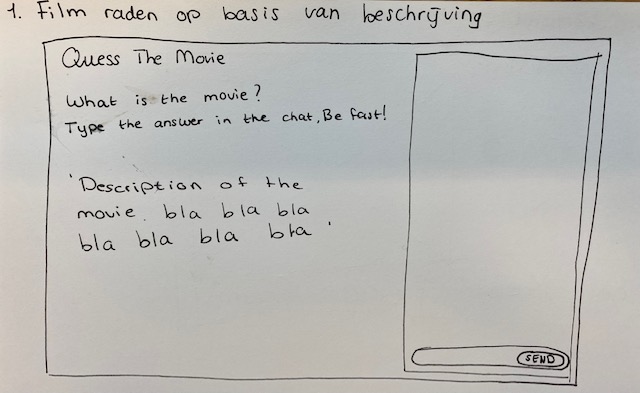 1. Film raden op basis van beschrijving
Quess The Movie
What is the movie?
Type the answer in the chat, Be fast!
'Description of the
movie. bla bla bla
bla bla bla bla'
SEND